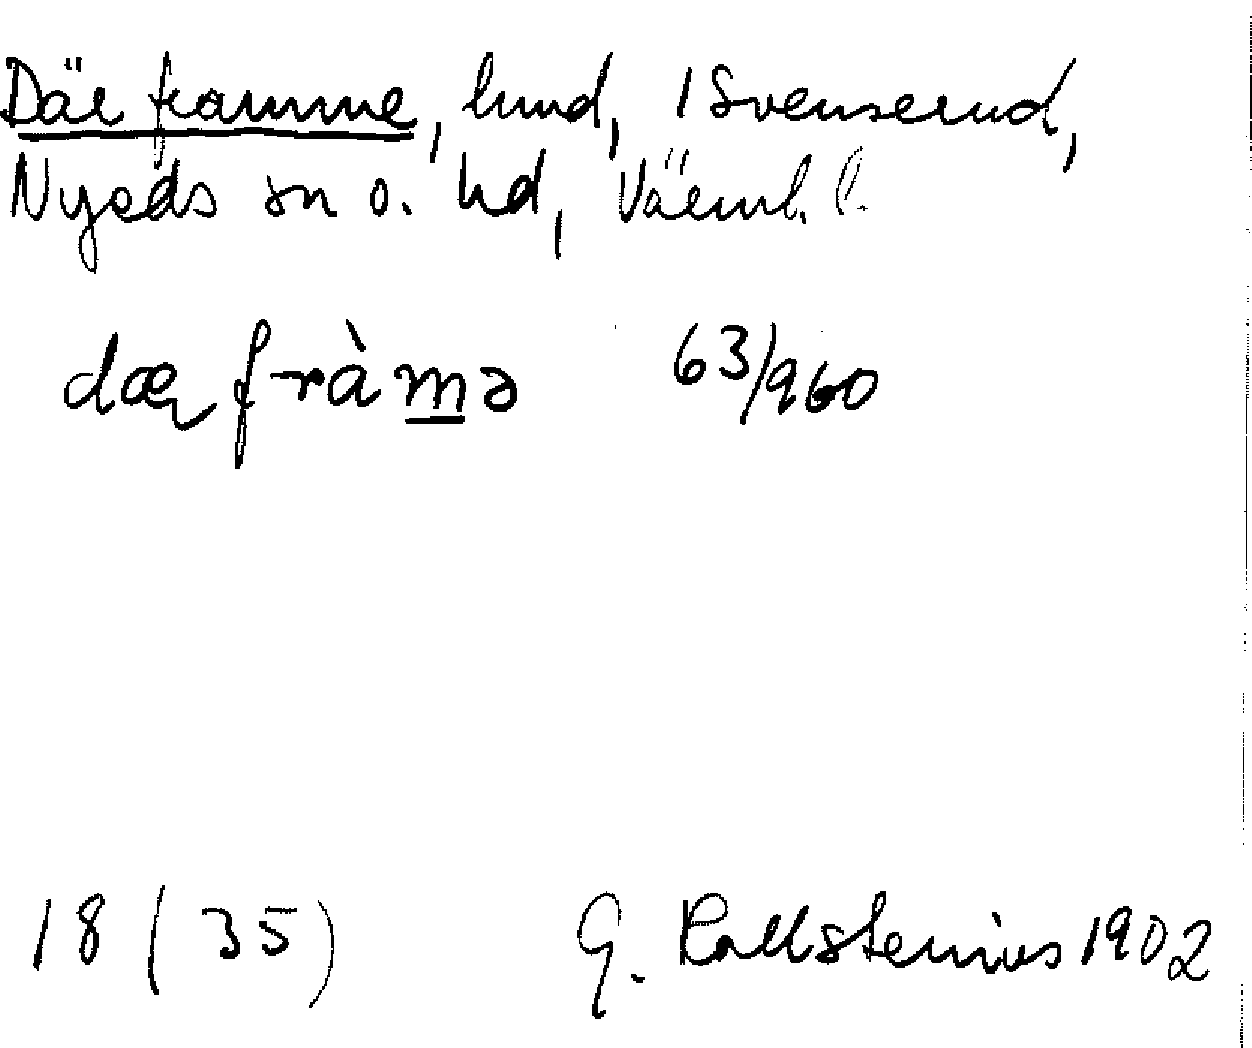 Där framme, lund, 1 Svenserud,
Nyeds sn o. hd, Värml. l.
dær fràmə 63/960
18 (35) G. Kallstenius 1902